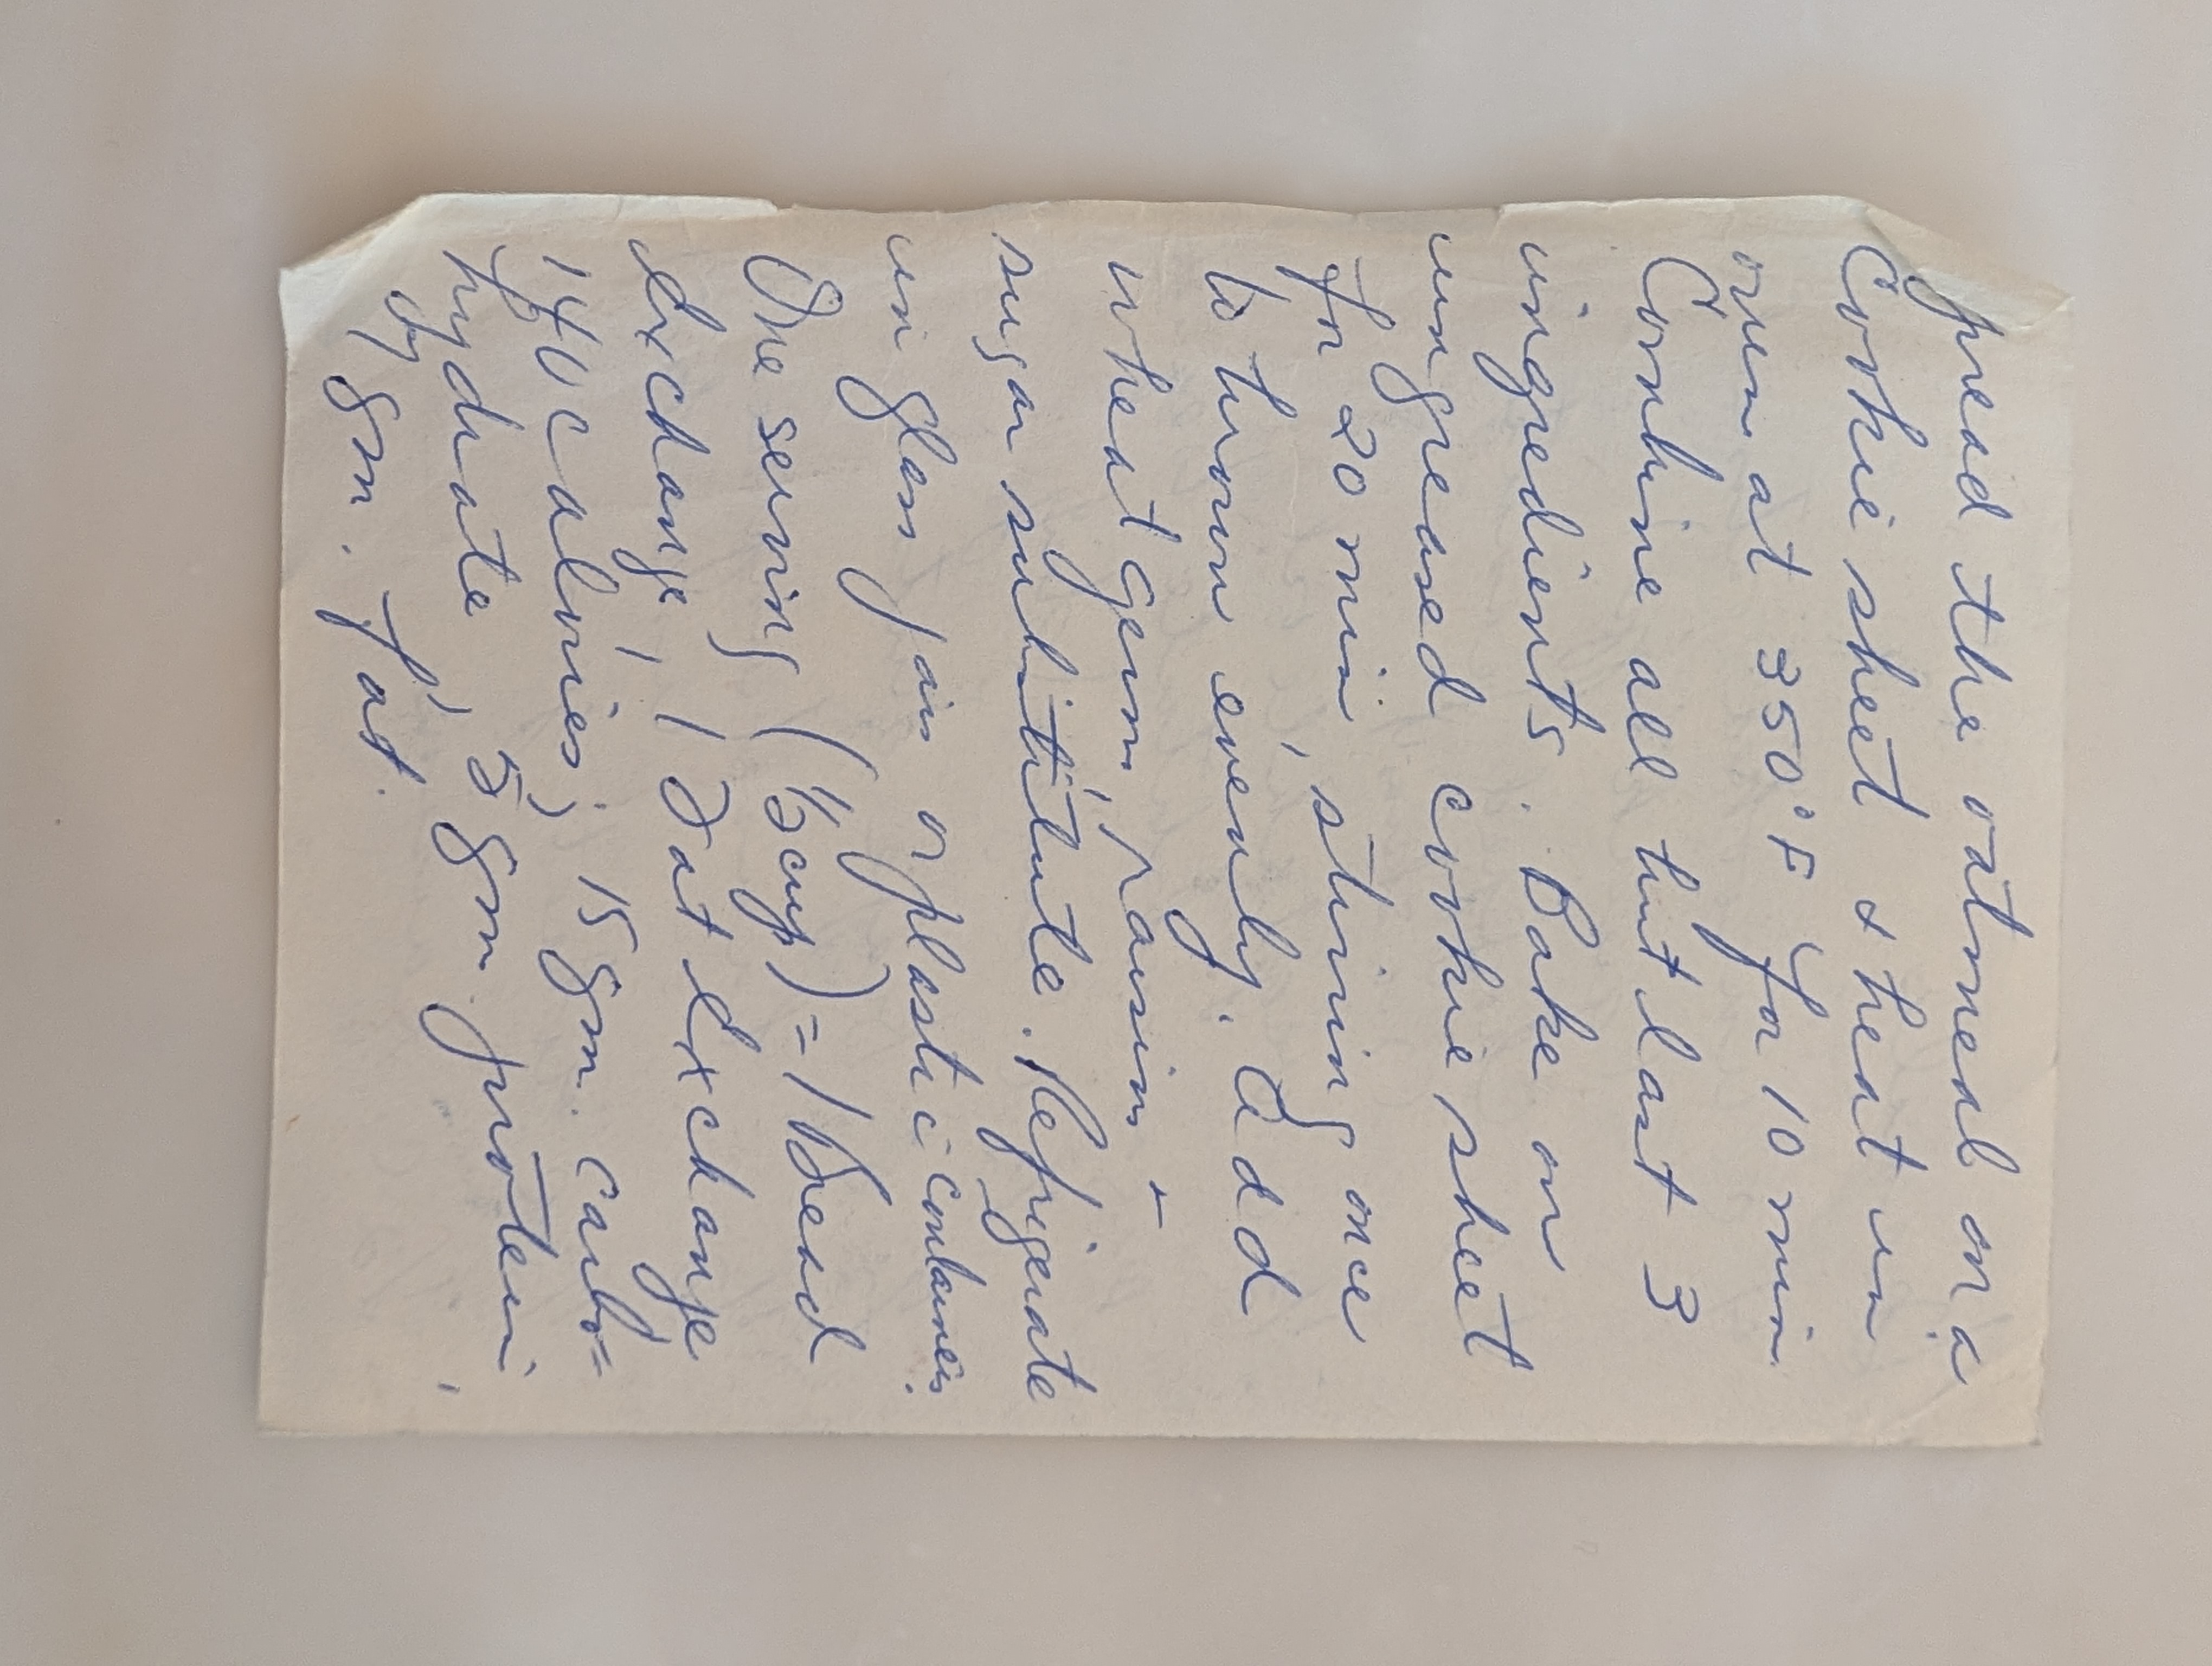 Spread the oatmeal on a
Cookie sheet & heat in
oven at 350°F for 10 min
Combine all but last 3
ingredients. Bake on
ungreased cookie sheet
for 20 min, stirring once
to brown evenly. Add
wheat germ, raisins +
sugar substitute. Refrigerate
in glass jars or plastic containers.
One serving (1/3 cup) = 1 Bread
Exchange, 1 Fat Exchange
140 calories; 15 gm. carbo=
hydrate, 3 gm protein,
gm. fat.